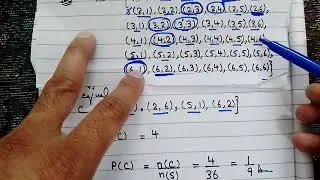 (2,1), (2,2), (2,3), (2,4), (2,5), (2,6),
(3,1), (3,2), (3,3), (3,4), (3,5), (3,6),
(4,1), (4,2), (4,3), (4,4), (4,5), (4,6)
(5,1), (5,2), (5,3), (5,4), (5,5), (5,6),
(6,1), (6,2), (6,3), (6,4), (6,5), (6,6)}
), (2,6), (5,1), (6,2)}
C) = 4
P(C) = n(C) / n(S) = 4 / 36 = 1 / 9